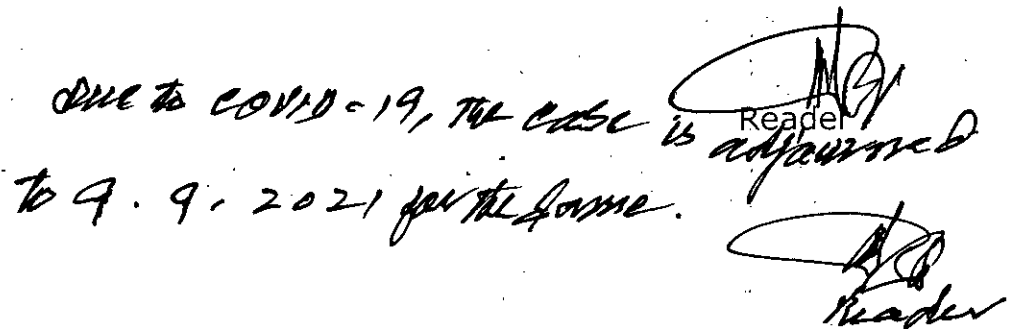 Reader
Due to COVID-19, the case is adjourned
to 9.9.2021 for the same.
Reader